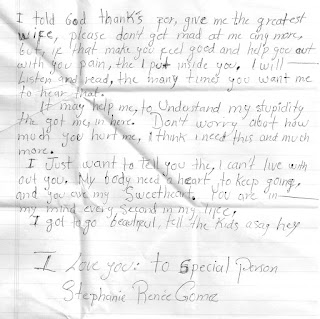 I told God thanks for, give me the greatest
wife, please don't get mad at me any more,
but, if that make you feel good and help you out
with you pain, the I put inside you. I will
Listen and read, the many times you want me
to hear that.
It may help me, to Understand my stupidity
the got me, in here. Don't worry about how
much you hurt me, I think i need this and much
more.
I Just want to tell you the, I can't live with
out you. My body need a heart to keep going,
and you are my Sweetheart. You are in
my mind every second in my life.
I got to go beautyful, tell the kids asap hey
I Love you: to Special Person
Stephanie Renée Gomez